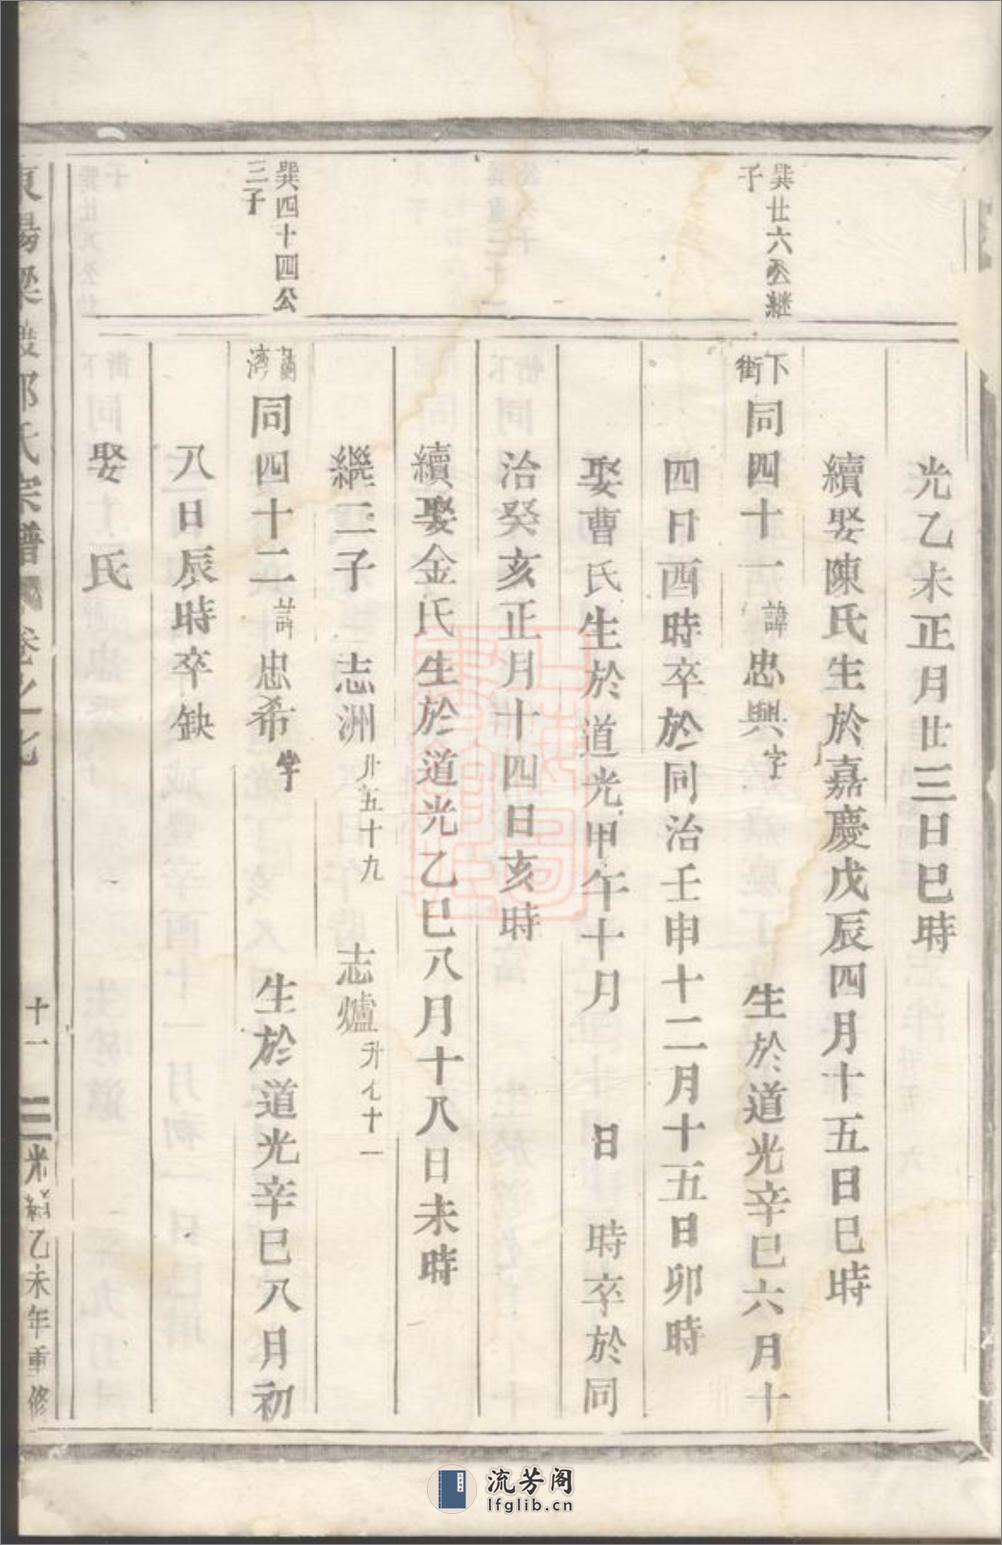 巽廿六公継
子
光乙未正月廿三日巳時
續娶陳氏生於嘉慶戊辰四月十五日巳時
下街
同四十一諱忠興字 生於道光辛巳六月十
四日酉時卒於同治壬申十二月十五日卯時
娶曹氏生於道光甲午十月 日 時卒於同
治癸亥正月十四日亥時
續娶金氏生於道光乙巳八月十八日未時
繼二子 志洲升五十九 志爐升七十一
巽四十四公
三子
同四十二諱忠希字 生於道光辛巳八月初
八日辰時卒缺
娶 氏
東陽梁渡郭氏宗譜 卷之七
十一
光緒乙未年重修
流芳阁
lfglib.cn